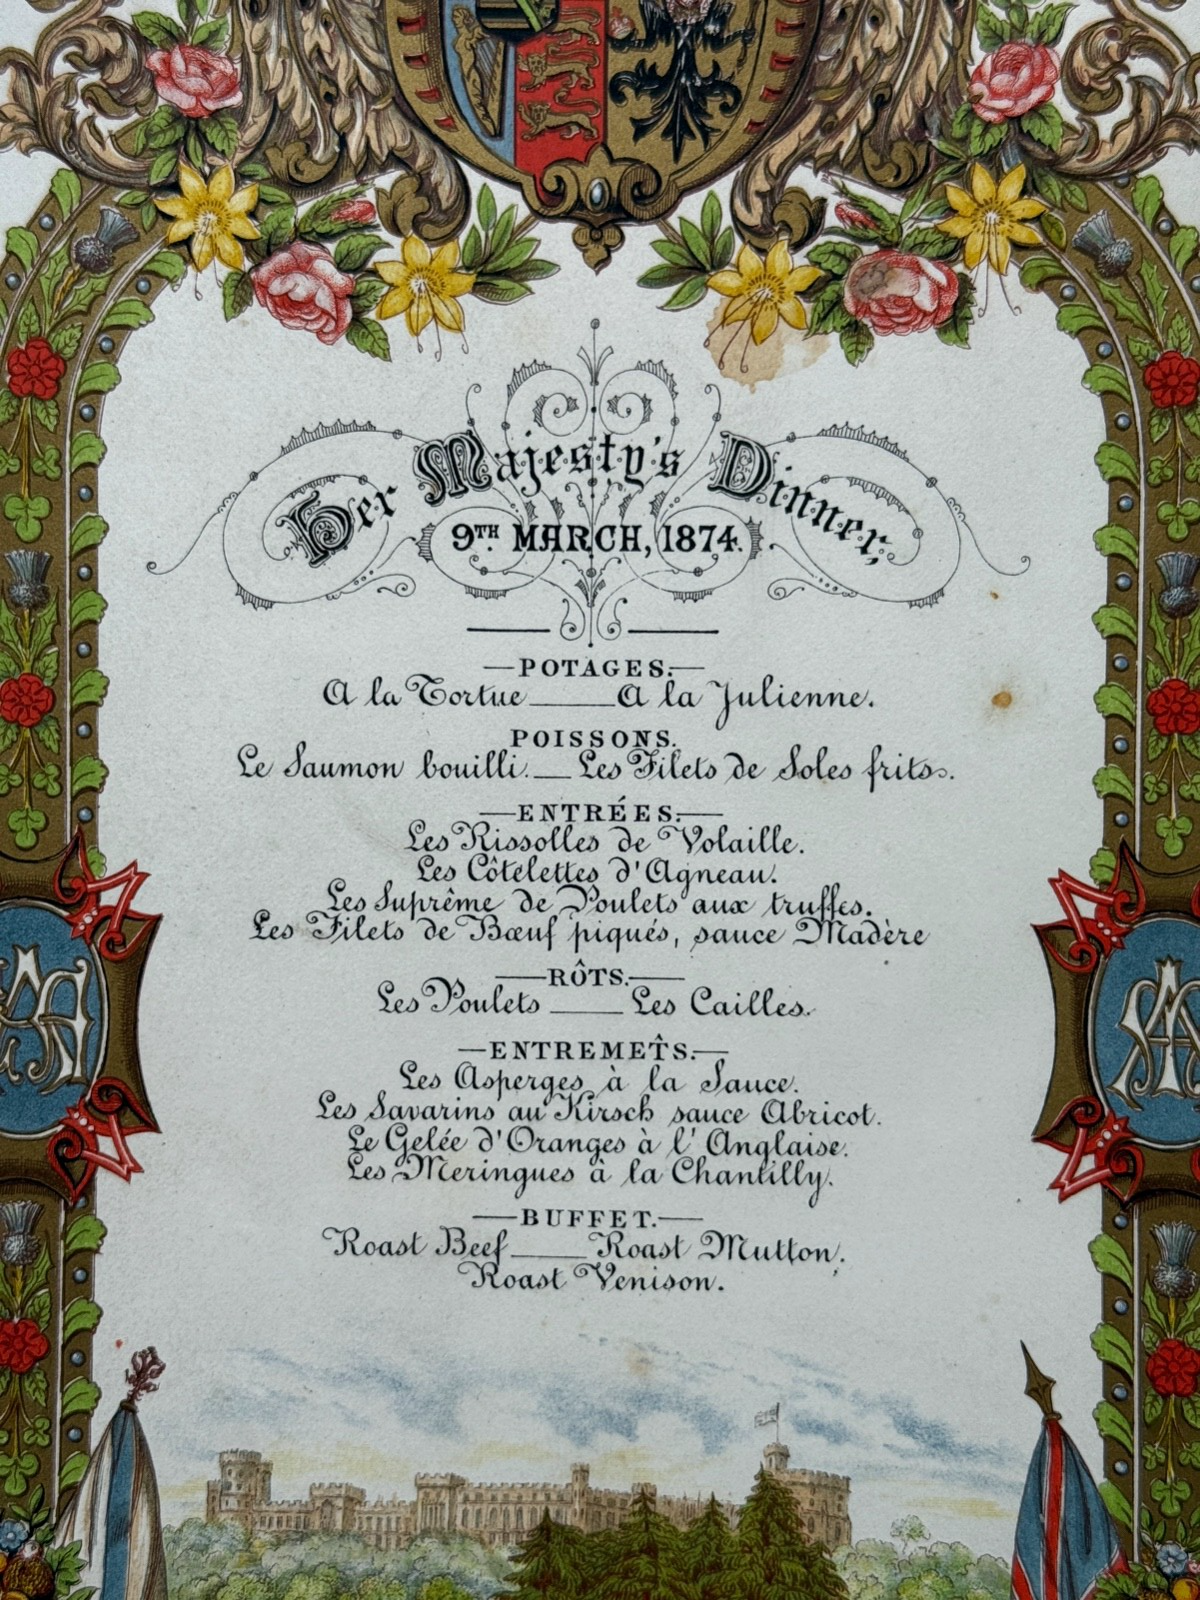 Her Majesty's Dinner,
9TH MARCH, 1874.
—POTAGES.—
A la Tortue ____ A la Julienne.
POISSONS.
Le Saumon bouilli. __ Les Filets de Soles frits.
—ENTRÉES.—
Les Rissolles de Volaille.
Les Côtelettes d'Agneau.
Les Suprême de Poulets aux truffes.
Les Filets de Bœuf piqués, sauce Madère
—RÔTS.—
Les Poulets ____ Les Cailles.
—ENTREMETS.—
Les Asperges à la Sauce.
Les Savarins au Kirsch sauce Abricot.
Le Gelée d'Oranges à l'Anglaise.
Les Meringues à la Chantilly.
—BUFFET.—
Roast Beef ____ Roast Mutton.
Roast Venison.